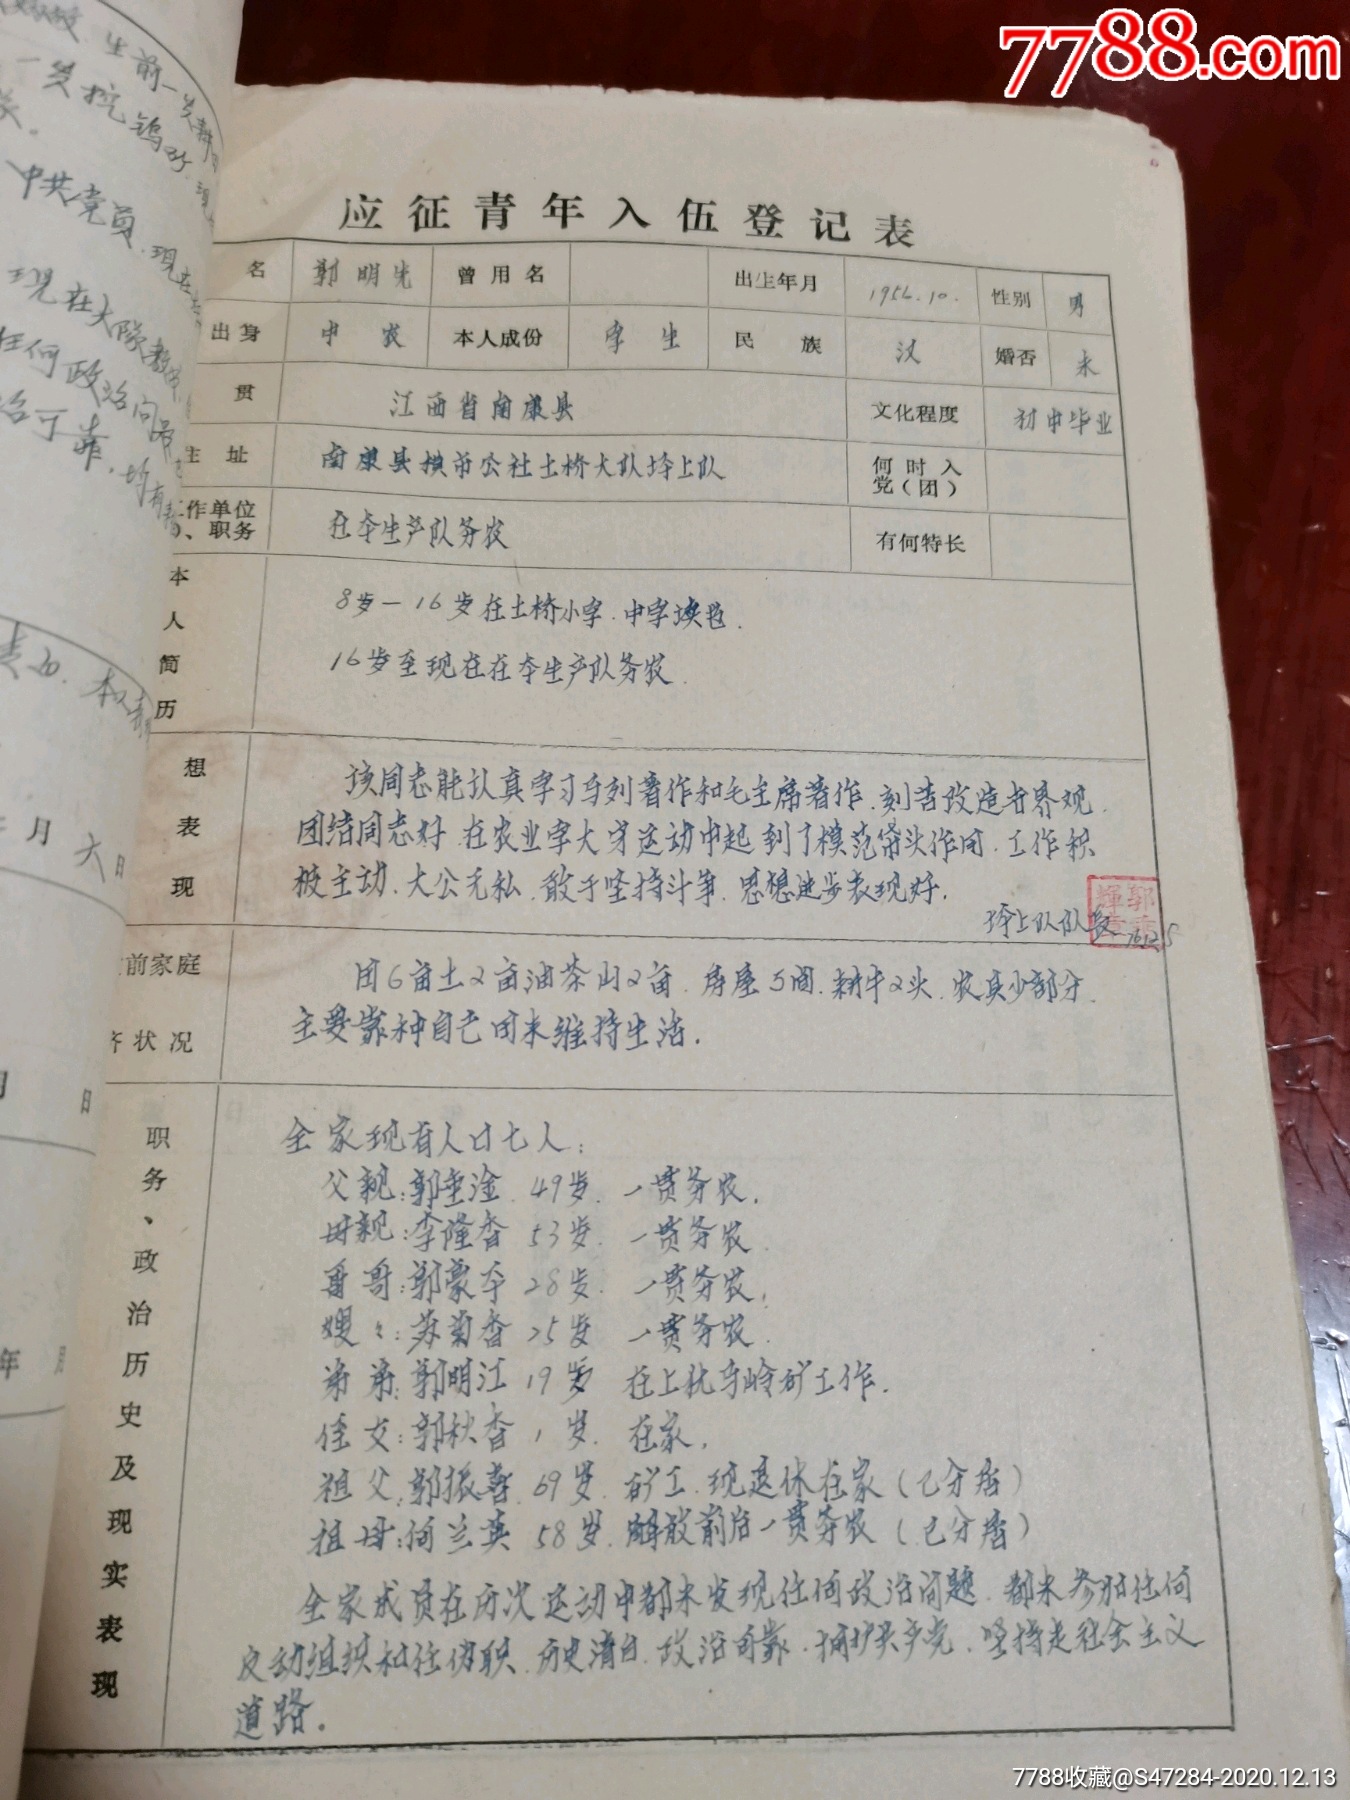 7788.com
生前一贯
一贯挖钨砂.现
中共党员.现在
现在大队教
任何政治问
治可靠.均有
月 六日
月 日
年 月
应征青年入伍登记表
名 郭明先 曾用名 出生年月 1954.10. 性别 男
出身 中农 本人成份 学生 民族 汉 婚否 未
贯 江西省南康县 文化程度 初中毕业
住址 南康县横市公社土桥大队垮上队 何时入党(团)
工作单位、职务 在本生产队务农 有何特长
本人简历
8岁—16岁在土桥小学.中学读书.
16岁至现在在本生产队务农.
想表现
该同志能认真学习马列著作和毛主席著作.刻苦改造世界观.
团结同志好.在农业学大寨运动中起到了模范带头作用.工作积
极主动.大公无私.敢于坚持斗争.思想进步表现好.
垮上队队长 76.12.5
前家庭
济状况
田6亩土2亩油茶山2亩.房屋5间.耕牛2头.农具少部分.
主要靠种自己田来维持生活.
职务、政治历史及现实表现
全家现有人口七人:
父亲:郭重淦 49岁.一贯务农.
母亲:李隆香 53岁.一贯务农.
哥哥:郭蒙本 28岁.一贯务农.
嫂々:苏菊香 25岁 一贯务农.
弟弟:郭明江 19岁 在上犹牛岭矿工作.
侄女:郭秋香 1岁.在家.
祖父:郭振喜 69岁.矿工.现退休在家(已分居)
祖母:何兰英 58岁.解放前后一贯务农(已分居)
全家成员在历次运动中都未发现任何政治问题.都未参加任何
反动组织和任伪职.历史清白.政治可靠.拥护共产党.坚持走社会主义
道路.
7788收藏@S47284-2020.12.13